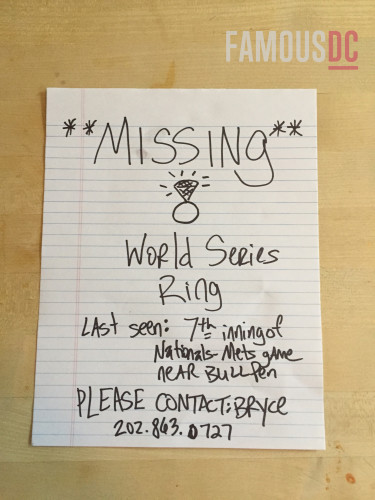 FAMOUSDC
**MISSING**
World Series
Ring
LAst seen: 7th inning of
Nationals-Mets game
neAR BULLPen
PLEASE CONTACT: BRYCE
202.863.0727